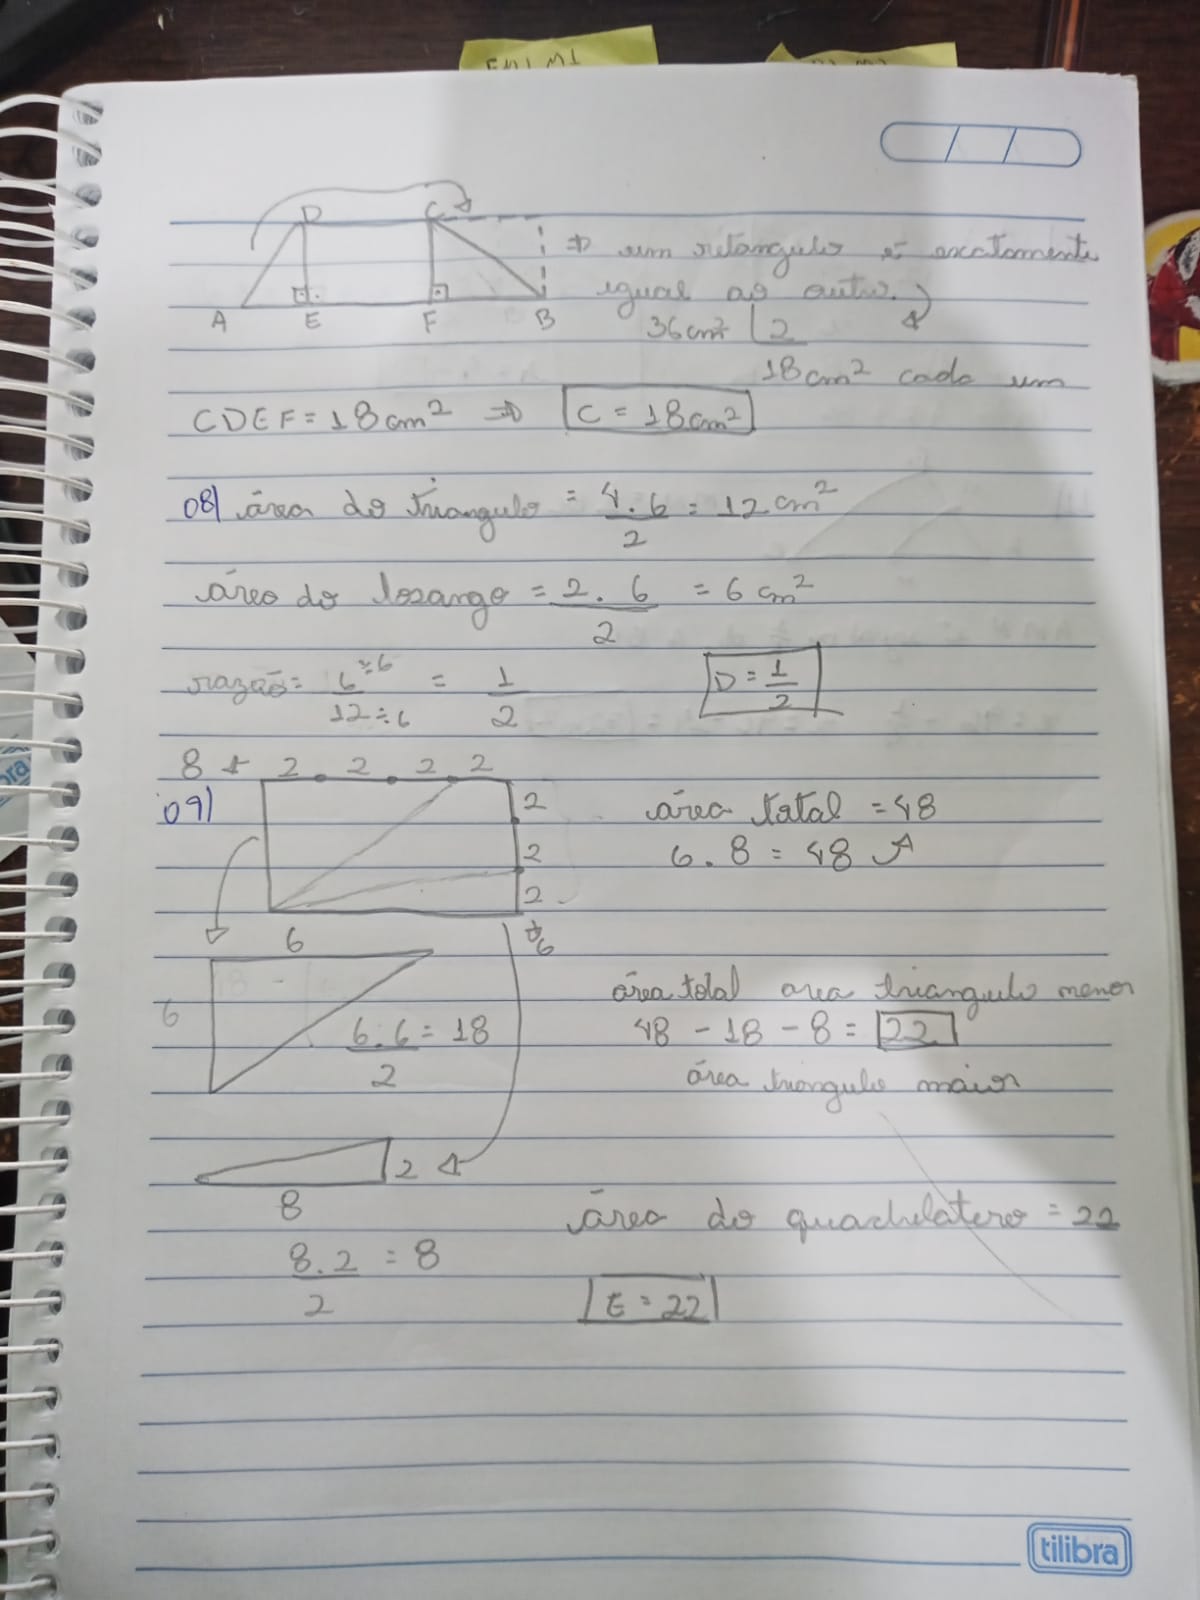 EM1 M1
D C
⇒ um retângulo é exatamente
igual ao outro.
A E F B
36cm² 2
18cm² cada um
CDEF = 18cm² ⇒ C = 18cm²
08) área do triangulo = 4.6 = 12 cm²
2
área do losango = 2.6 = 6 cm²
2
razão = 6÷6 = 1
12÷6 2
D = 1
2
8 ← 2 2 2 2
09) 2 área total = 48
2 6.8 = 48
2
6 6
6 área total area triangulo menor
6.6 = 18 48 - 18 - 8 = 22
2 área triangulo maior
2
8
área do quadrilatero = 22
8.2 = 8
2 E = 22
tilibra